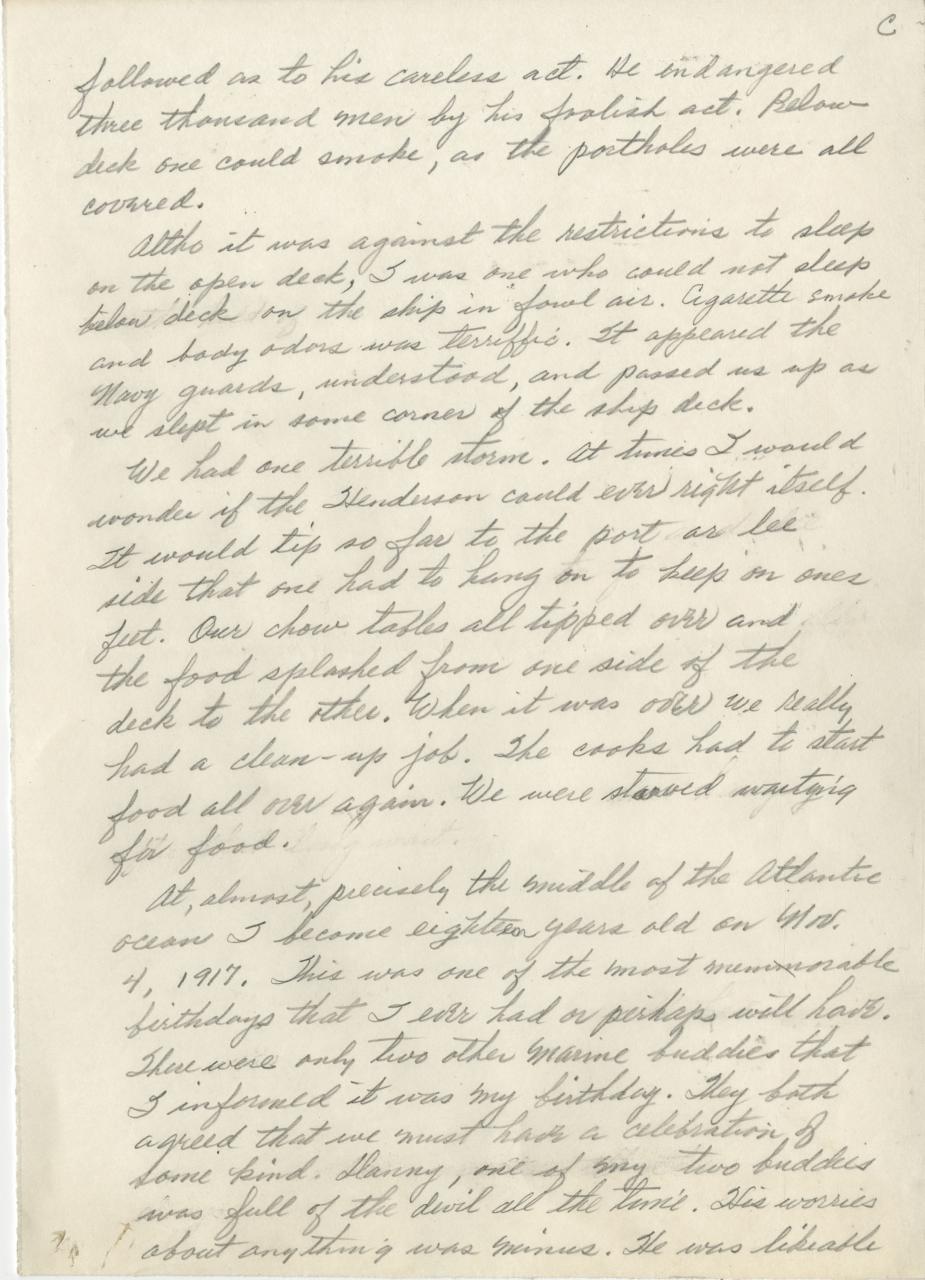 C
followed as to his careless act. He endangered
three thousand men by his foolish act. Below
deck one could smoke, as the portholes were all
covered.
Altho it was against the restrictions to sleep
on the open deck, I was one who could not sleep
below deck on the ship in fowl air. Cigarette smoke
and body odors was terriffic. It appeared the
Navy guards, understood, and passed us up as
we slept in some corner of the ship deck.
We had one terrible storm. At times I would
wonder if the Henderson could ever right itself.
It would tip so far to the port or lee
side that one had to hang on to keep on ones
feet. Our chow tables all tipped over and
the food splashed from one side of the
deck to the other. When it was over we really
had a clean-up job. The cooks had to start
food all over again. We were starved waitying
for food.
At, almost, precisely the middle of the Atlantic
ocean I become eighteen years old on Nov.
4, 1917. This was one of the most memmorable
birthdays that I ever had or perhaps will have.
There were only two other Marine buddies that
I informed it was my birthday. They both
agreed that we must have a celebration of
some kind. Danny, one of my two buddies
was full of the devil all the time. His worries
about anything was minus. He was likeable